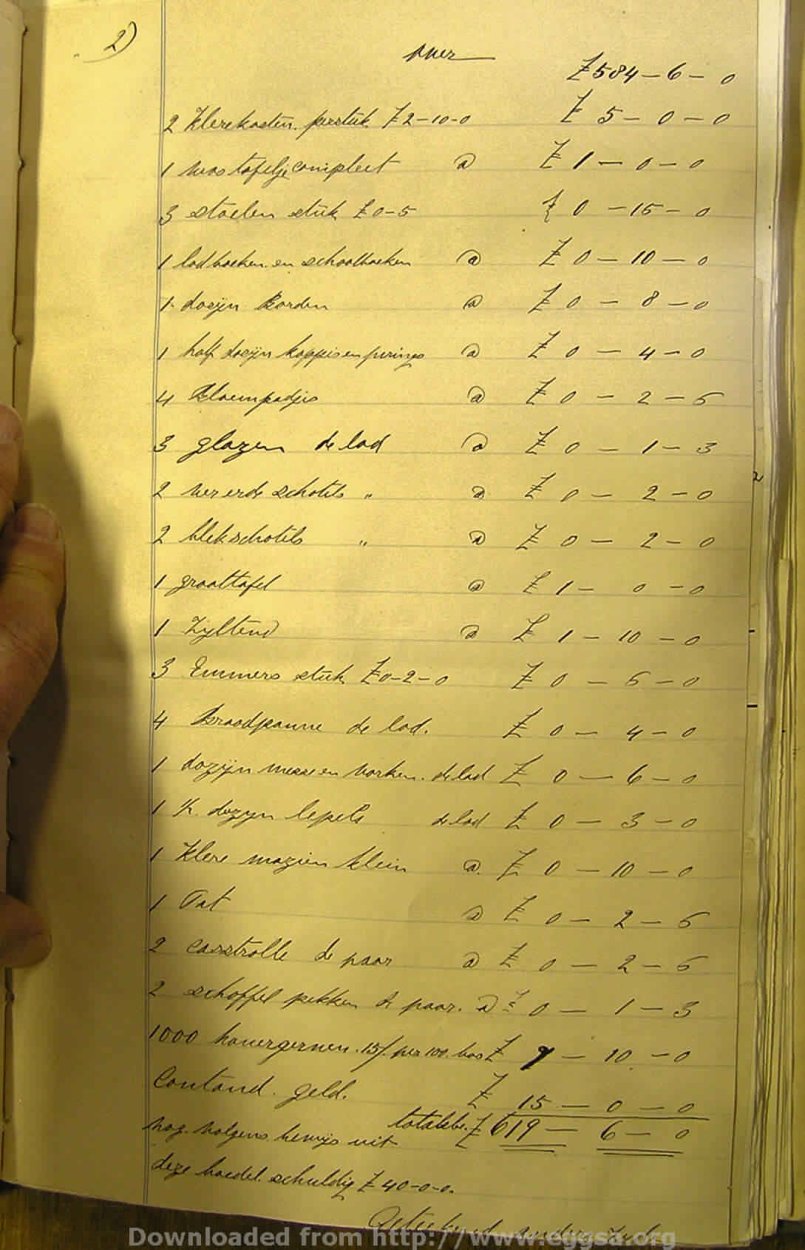 2)
over £584-6-0
2 klerekasten. perstuk £2-10-0 £ 5-0-0
1 wastafeltje compleet @ £1-0-0
3 stoelen stuk £0-5 £ 0-15-0
1 lad boeken en schoolboeken @ £0-10-0
1 dozijn Borden @ £0-8-0
1 half dozijn koppies en pierings @ £0-4-0
4 Bloempotjes @ £0-2-6
3 glazen de lad @ £0-1-3
2 schotels " @ £0-2-0
2 blekschotels " @ £0-2-0
1 groottafel @ £1-0-0
1 Zyltend @ £1-10-0
3 Emmers stuk £0-2-0 £0-6-0
4 Broodpanne de lad. £0-4-0
1 dozijn messe en vorken. de lad £0-6-0
1 ½ dozyn lepels de lad £0-3-0
1 klere mazien klein @ £0-10-0
1 Vat @ £0-2-6
2 casstrolle de paar @ £0-2-6
2 schoffel pikken de paar. @ £0-1-3
1000 hawergerwen. 15/ per 100. bos £ 7-10-0
Contand. geld. £ 15-0-0
totalebe. £619-6-0
nog volgens bewijs uit
deze boedel schuldig £40-0-0.
Downloaded from http://www.eggsa.org